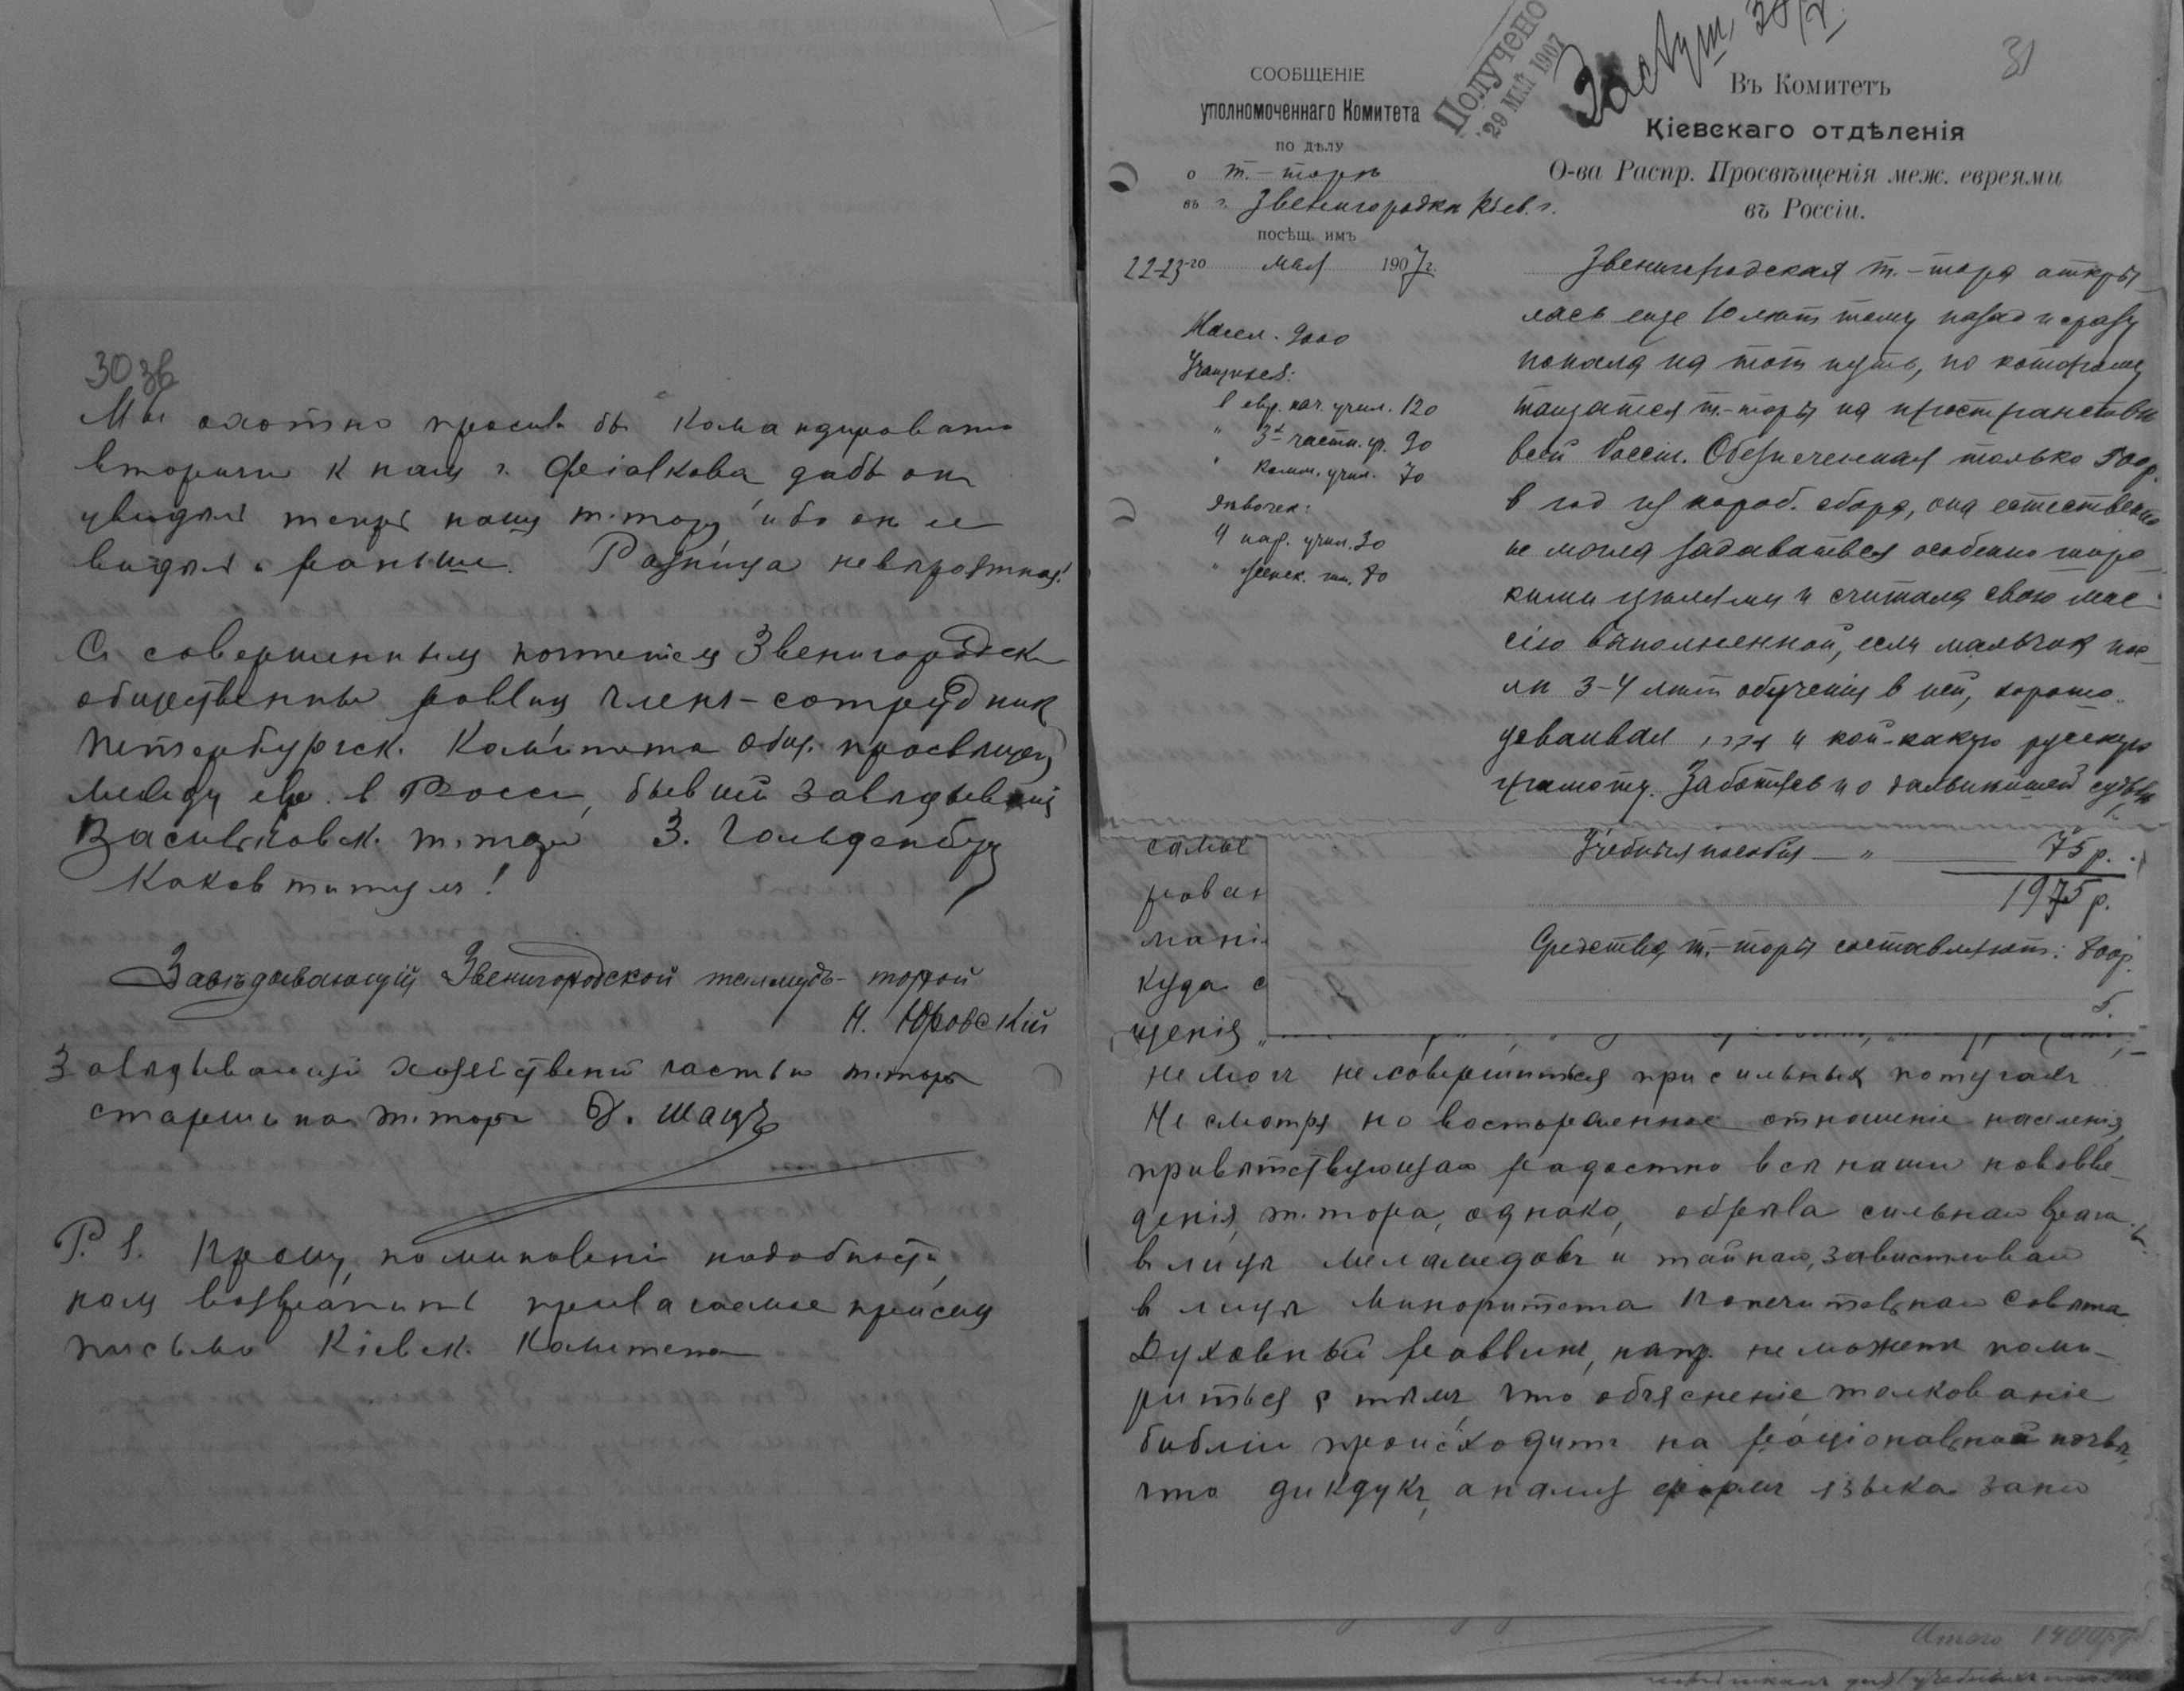 30 зв
Мы охотно просили бы командировать
вторично к нам г. Фіалкова дабы он
увидел теперь нашу т.-тору ибо он ее
видел и раньше. Разница невероятная!
С совершенным почтением Звенигородск
общественный раввин член-сотрудник
Петербургск. Комитета общ. просвещен
между евр. в Росси, бывший заведывающій
Васильковск. т. торой З. Гольденберг
Каков титул!
Завѣдывающій Звенигородской талмудъ-торой
Н. Юровскій
Заведывающій хозяйственной частью т. торы
старшина т. торы
P. S. Прошу, по миновеніи надобности,
нам возвратить прилагаемое при сем
письмо Кіевск. Комитета
31
Получено
29 МАЙ 1907
СООБЩЕНІЕ
уполномоченнаго Комитета
по дѣлу
о т.-торѣ
въ г. Звенигородка Кіев. г.
посѣщ. имъ
22-23-го мая 1907 г.
Насел. 9000
Учащихся:
в евр. нач. учил. 120
" 3х частн. уч. 90
" Комм. учил. 70
Дѣвочек:
Ч нар. учил. 30
" женск. гим. 80
Въ Комитетъ
Кіевскаго отдѣленія
О-ва Распр. Просвѣщенія меж. евреями
въ Россіи.
Звенигородская т.-тора откры-
лась еще 10 лет тому назад и сразу
попала на тот путь, по которому
тащатся т.-торы на пространстве
всей Россіи. Обезпеченная только 500 р.
в год из короб. сбора, она естественно
не могла задаваться особенно широ-
кими целями и считала свою мис-
сію выполненной, если мальчик пос-
ле 3-4 лет обученія в ней, хорошо
усваивал и кой-какую русскую
грамоту. Заботясь и о дальнейшей судьбе
Учебныя пособія — " 75 р.
1975 р.
Средства т.-торы составляют: 800 р.
5.
самые
рован
мані
куда с
щенія
не мог не совершиться при сильных потугах
Не смотря на восторженное отношеніе населенія,
приветствующая радостно все наши нововве-
денія, т. тора, однако, обрела сильнаго врага
в лице меламедов и тайнаго, завистливаго
в лице миноритета попечительнаго совета.
Духовный раввин, напр. не может поми-
риться с тем что объясненіе толкованіе
библіи происходит на раціональной почве,
что дикдук, анализ форм языка зани
Итого 1400 руб.